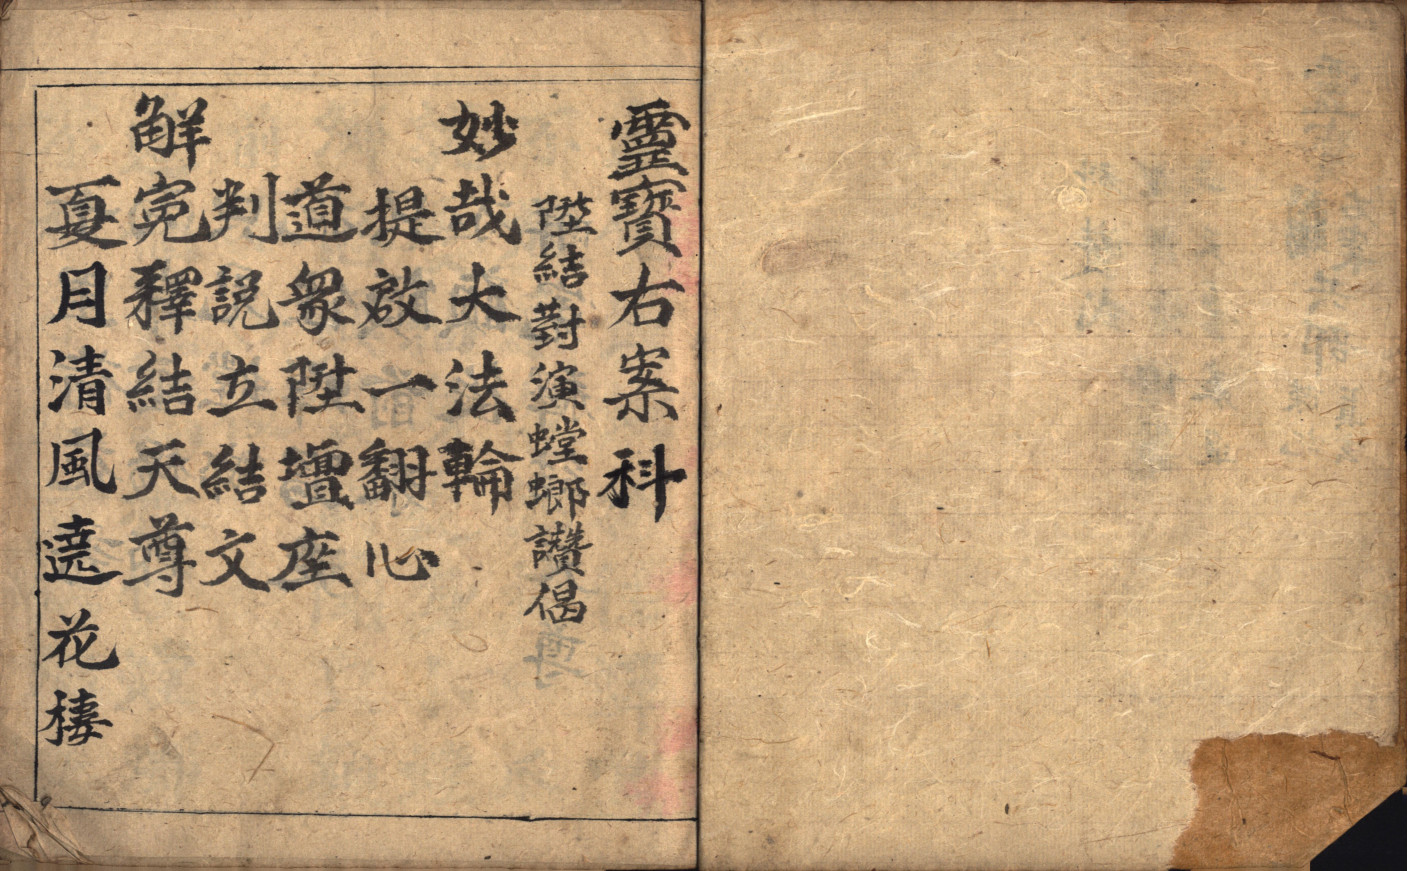 靈寶右案科
陞結對演螳螂讚偈
妙哉大法輪
提啟一翻心
道衆陞壇座
判說立結文
解寃釋結天尊
夏月清風遶花棲